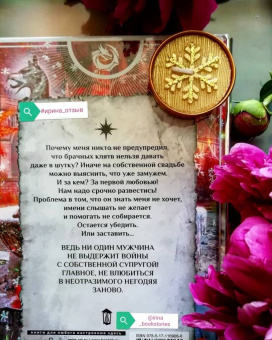 #ирина_отзыв
Почему меня никто не предупредил,
что брачных клятв нельзя давать
даже в шутку? Иначе на собственной свадьбе
можно выяснить, что уже замужем.
И за кем? За первой любовью!
Нам надо срочно развестись!
Проблема в том, что он знать меня не хочет,
имени слышать не желает
и помогать не собирается.
Остается убедить.
Или заставить...
ВЕДЬ НИ ОДИН МУЖЧИНА
НЕ ВЫДЕРЖИТ ВОЙНЫ
С СОБСТВЕННОЙ СУПРУГОЙ!
ГЛАВНОЕ, НЕ ВЛЮБИТЬСЯ
В НЕОТРАЗИМОГО НЕГОДЯЯ
ЗАНОВО.
книги для любого настроения здесь
@irina
_bookstories